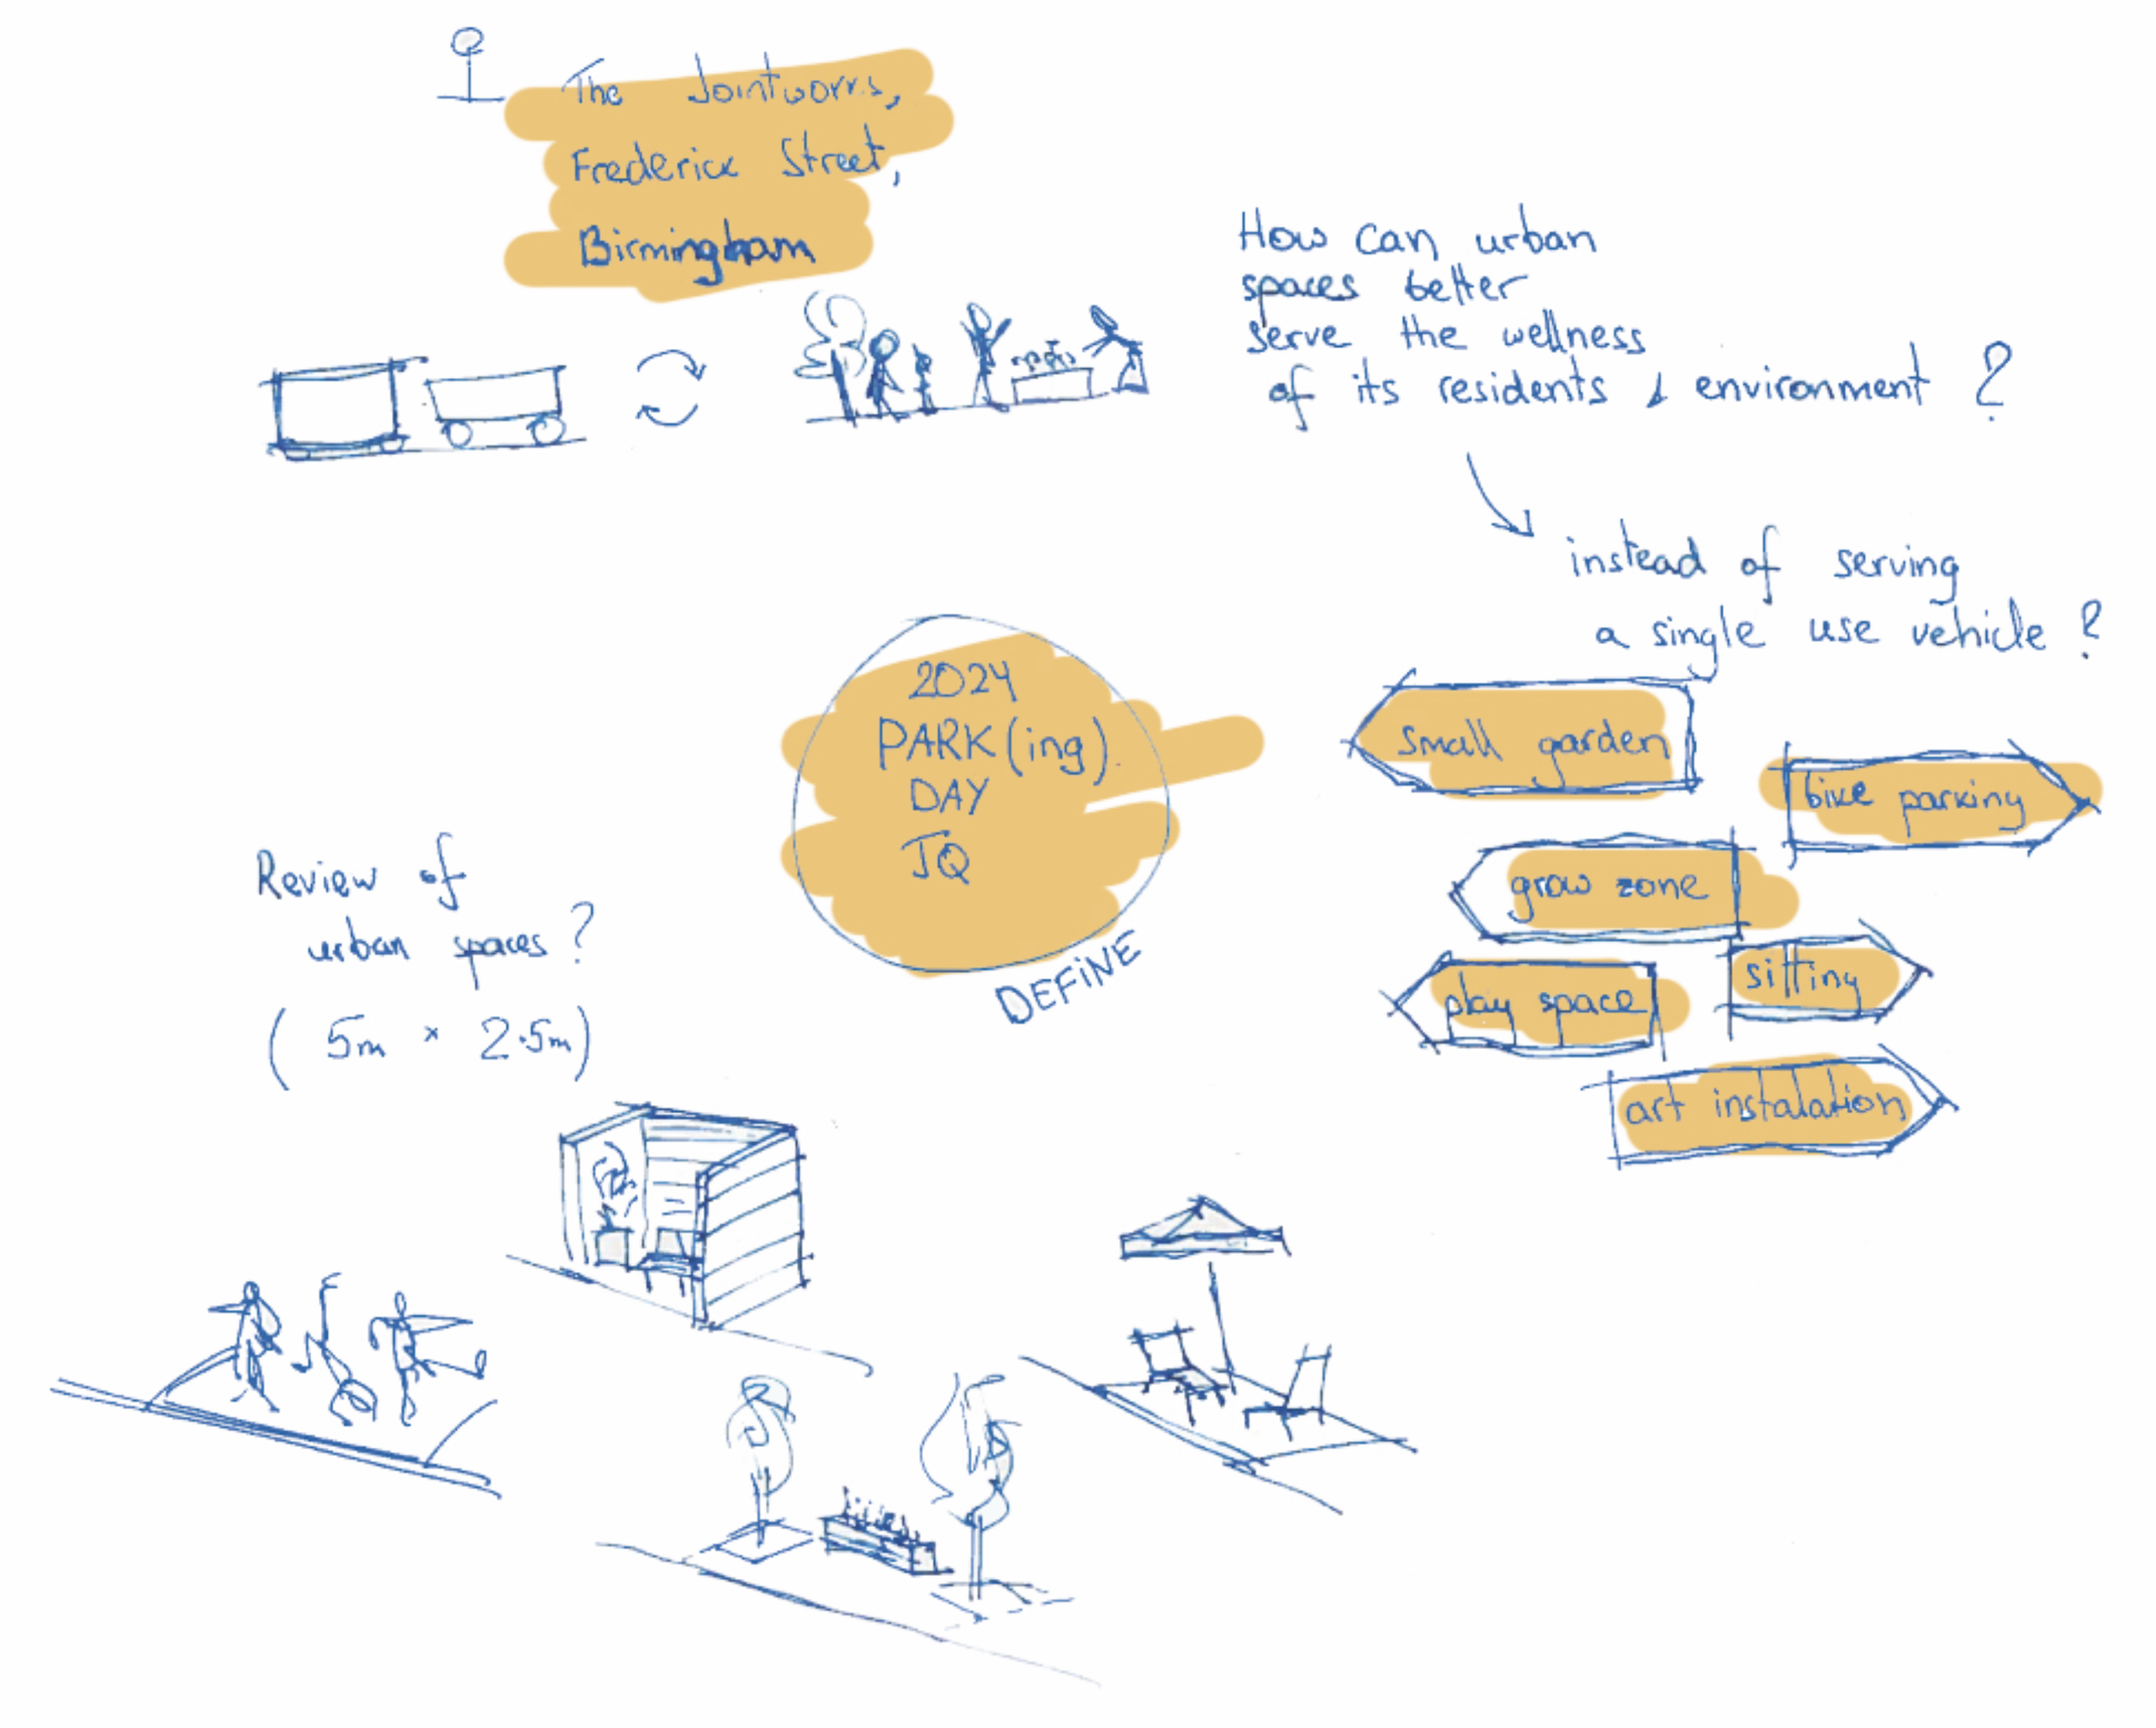 The Jointworks,
Frederick Street,
Birmingham
How can urban
spaces better
serve the wellness
of its residents & environment ?
instead of serving
a single use vehicle ?
2024
PARK(ing)
DAY
JQ
DEFINE
small garden
bike parking
grow zone
sitting
play space
art instalation
Review of
urban spaces ?
( 5m × 2.5m )